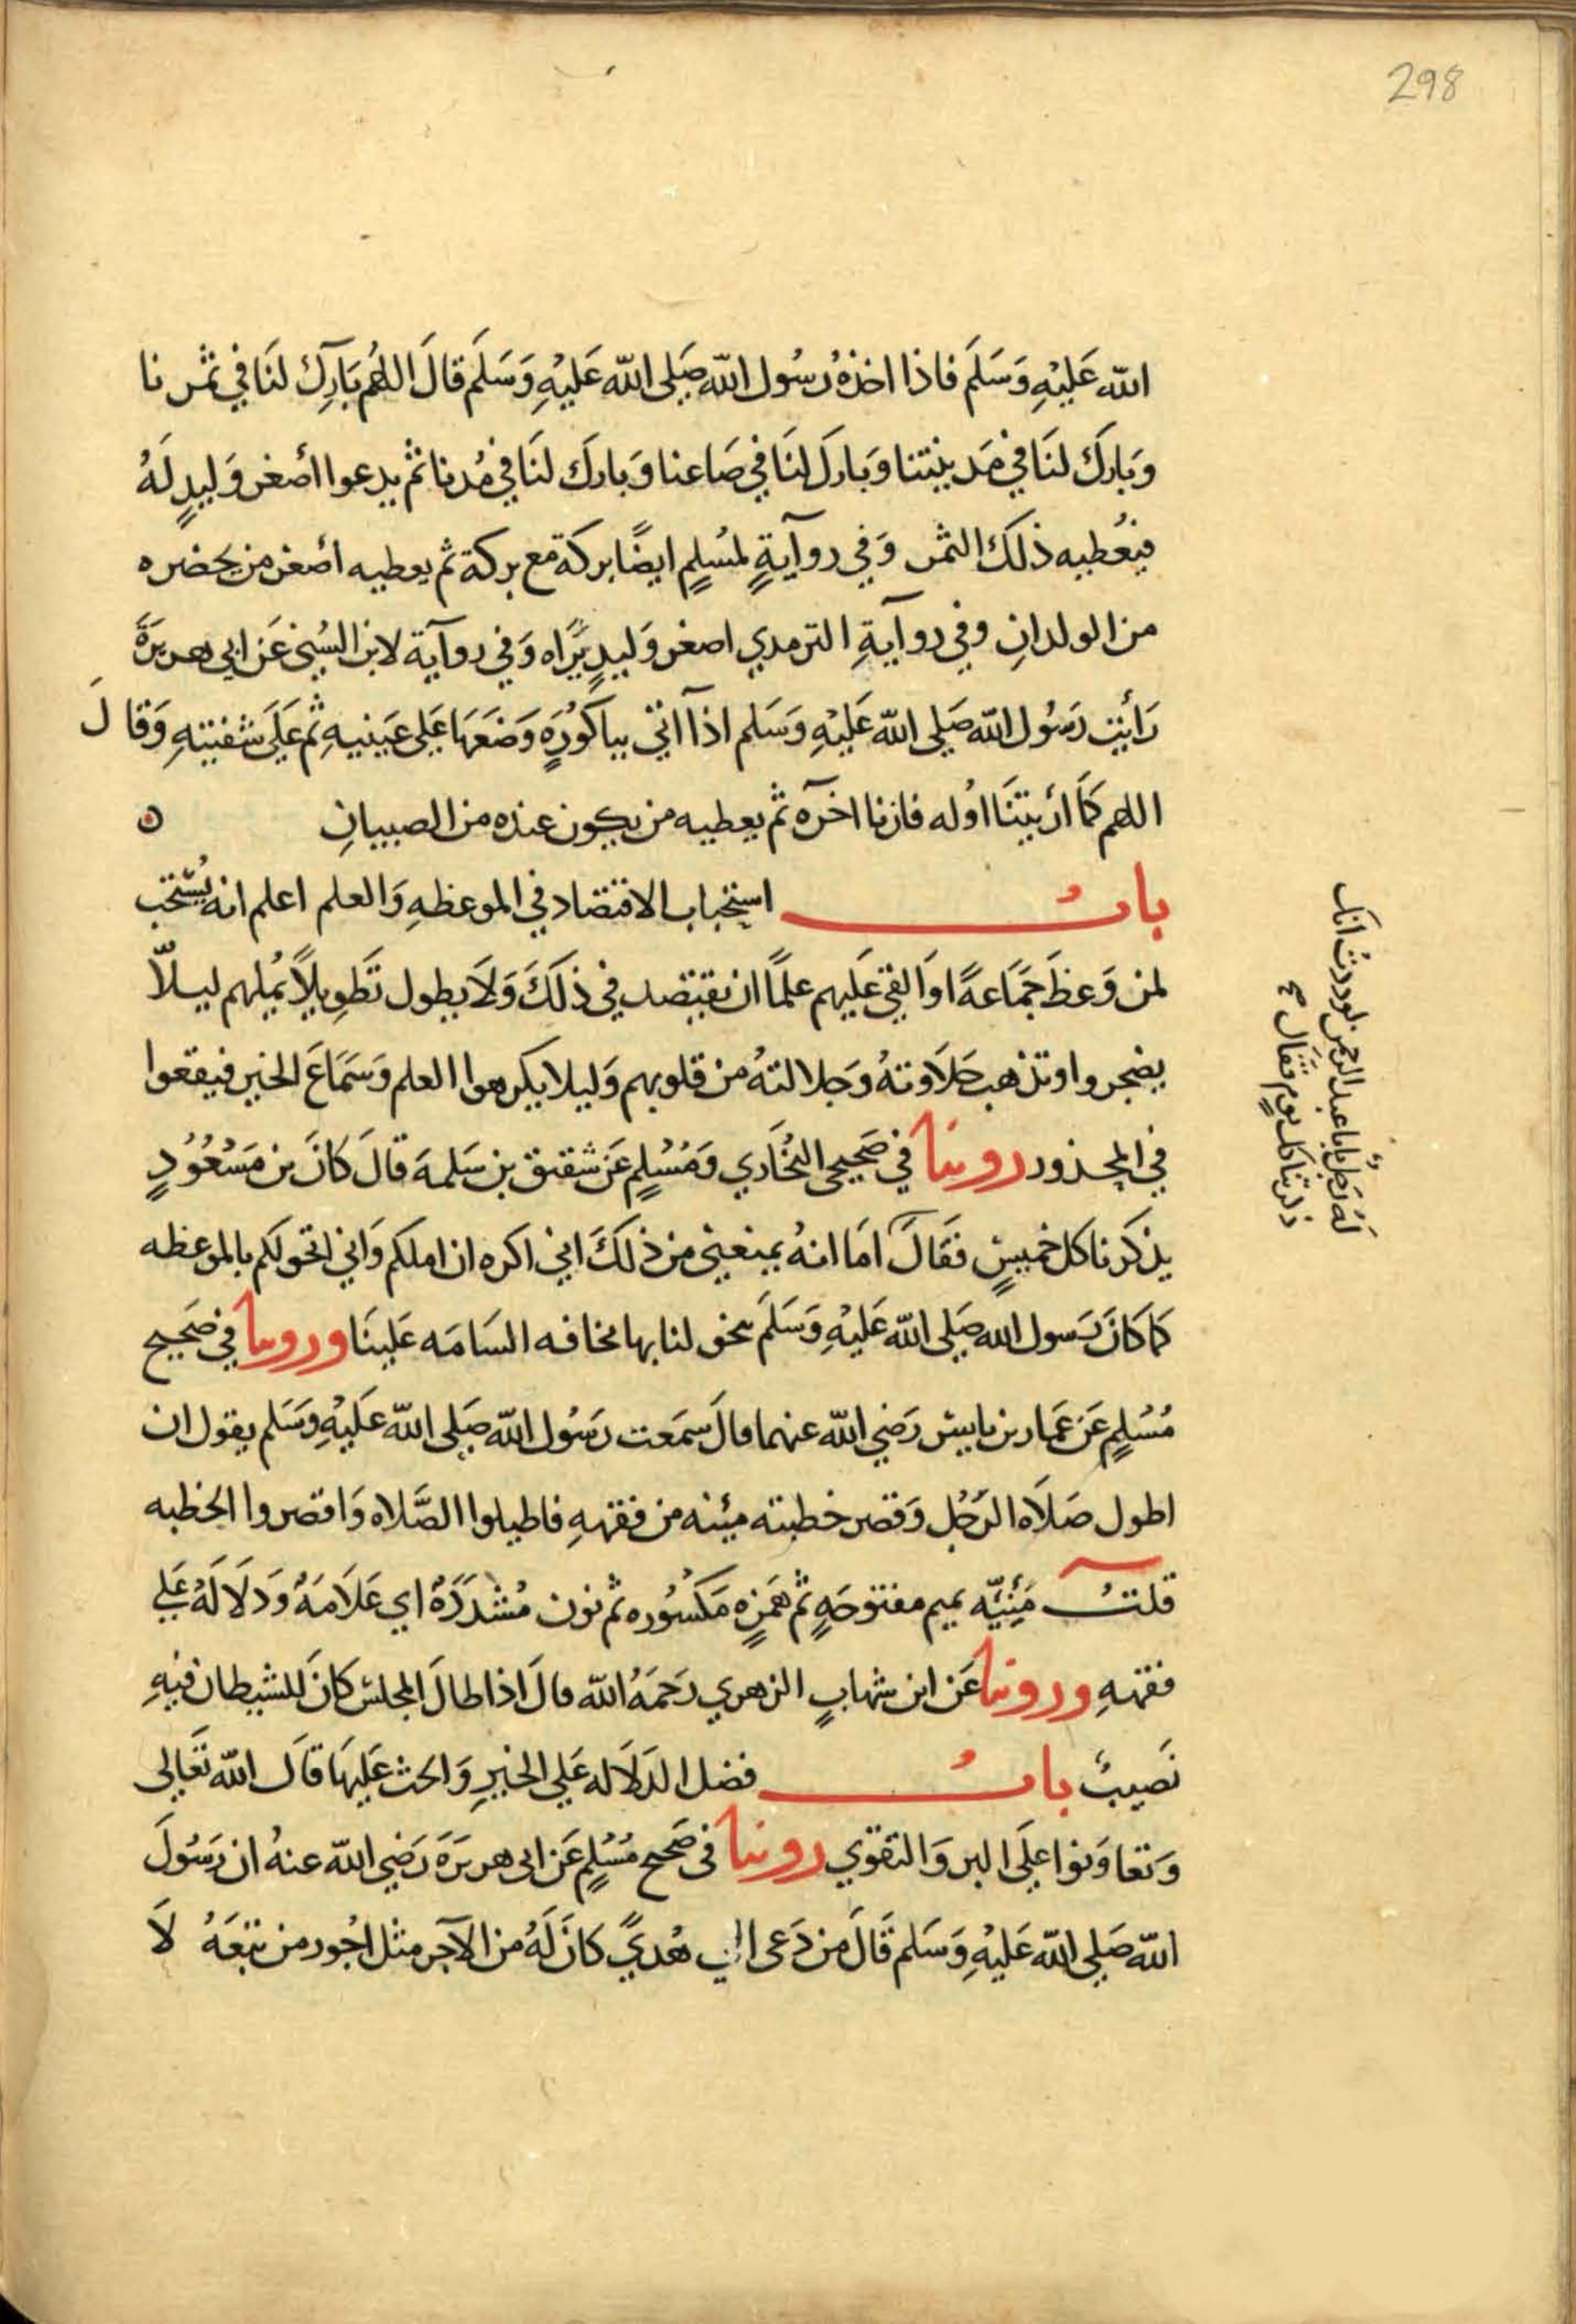 298
الله عَلَيْهِ وَسَلَم فاذا اخذهُ رسُول الله صَلى الله عَليْهِ وَسَلَم قالَ اللهُم بَارِك لنَا في ثمر نا
وَبَارك لنَا في مَدينتنا وَبَارك لنَا في صَاعنا وَبارك لنَا في مُدنا ثم يدعوا أصغر وَليدٍ لَهُ
فيعُطيه ذلك الثمر وَفي روآيةٍ لمسُلمٍ ايضًا بركة مع بركة ثم يعطيه اصغر من يحضره
من الولدانِ وفي روآيةِ الترمدي اصغر وَليدٍ يَرَاه وَفي روآية لابن السُني عَن ابي هريرَةَ
رَأيت رَسُول الله صَلى الله عَليْهِ وَسَلم اذآ اتي بباكوُرَهٍ وَضَعَهَا عَلى عَينيهِ ثم عَلَى شفيتهِ وَقالَ
اللهم كمَا أريتنَا اوُله فارنا اخرَه ثم يعطيه من يكون عنده من الصبيانِ ه
بابُ استحباب الاقتصاد في الموعظهِ وَالعلم اعلم انه يُستحَب
لمن وَعظَ جَمَاعةً اوَالقي عَليهم علمًا ان يقتصد في ذلكَ وَلاَ يطول تَطوِيلاً يُملهم ليلاّ
يضجروا وتذهب حَلاَوتهُ وَجلالتهُ من قلوبهم وَليلا يكرهوا العلم وَسَمَاعَ الخير فيقعوا
في المحذور روينا في صَحيحي البُخَاري وَمُسْلمٍ عَن شقيق بن سَلمهَ قالَ كانَ بن مَسْعُوُدٍ
يذكرنا كل خميسٍ فقَالَ اَمَا انهُ يمنعني من ذلكَ اني اكره ان املكم وَاني اتخولكم بالموعظه
كما كانَ رَسول الله صَلى الله عَليْهِ وَسَلَم يتخولنا بها مخافه السَامَه عَلينَا وروينا في صَحيح
مُسْلمٍ عَن عَمار بن ياسِر رَضي الله عنهما قالَ سمَعت رَسُول الله صَلى الله عَليْهِ وَسَلم يقول ان
اطول صَلاَه الرَجُل وَقصر خطبته مئنه من فقههِ فاطيلوا الصَّلاه وَاقصروا الخطبه
قلتُ مَئِنَّه بميم مفتوحَهٍ ثم هَمَزهٍ مَكسُوره ثم نون مُشدَدَةُ اي عَلاَمَهُ وَدلاَلَهُ عَلي
فقههِ وروينا عَن ابن شهابٍ الزهري رَحمَهُ الله قالَ اذا طالَ المجلس كانَ للشيطان فيهِ
نَصيبُ بابُ فضل الدَلاَله عَلي الخيرِ وَالحث عَليهَا قالَ الله تعَالى
وَتعاوَنوا علَى البر وَالتقوي روينا في صَحيح مُسْلمٍ عَن ابي هريرَة رَضي الله عنهُ ان رَسُولَ
الله صَلي الله عَليْهِ وَسَلم قَالَ من دَعى الي هُديً كانَ لَهُ من الآجر مثل اجُور من تبعَهُ لاَ
لَهُ رَجلٌ يابا عبد الرحمن لوددتُ انك
ذكرتنا كل يومٍ فقال صح